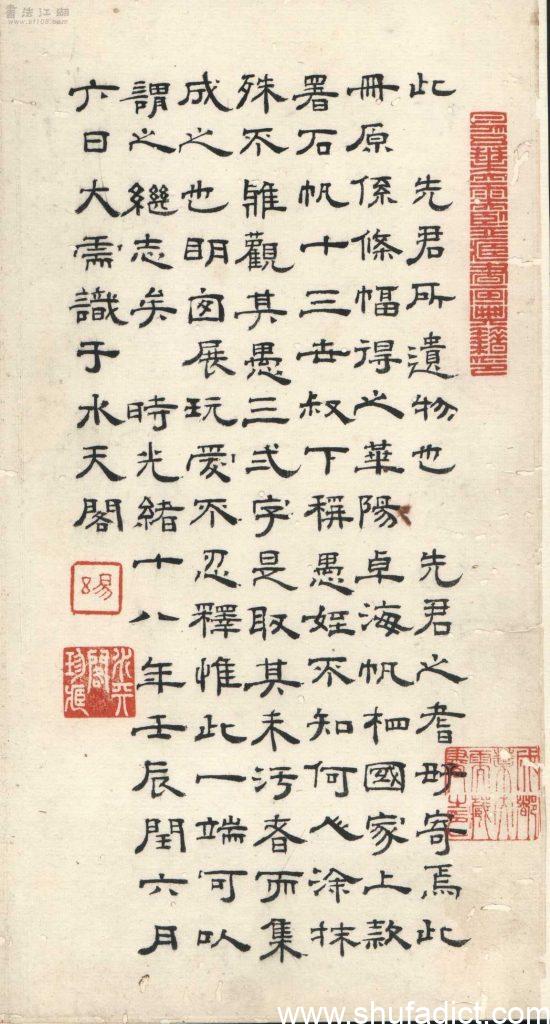 書法江湖
www.sf108.com
此 先君所遺物也 先君之耆好寄焉此
冊原係條幅得之華陽卓海帆相國家上款
署石帆十三世叔下稱愚姪不知何人涂抹
殊不雅觀其愚三弍字是取其未污者而集
成之也明囪展玩愛不忍釋惟此一端可以
謂之繼志矣 時光緒十八年壬辰閏六月
六日大需識于水天閣
水天閣珍藏
www.shufadict.com